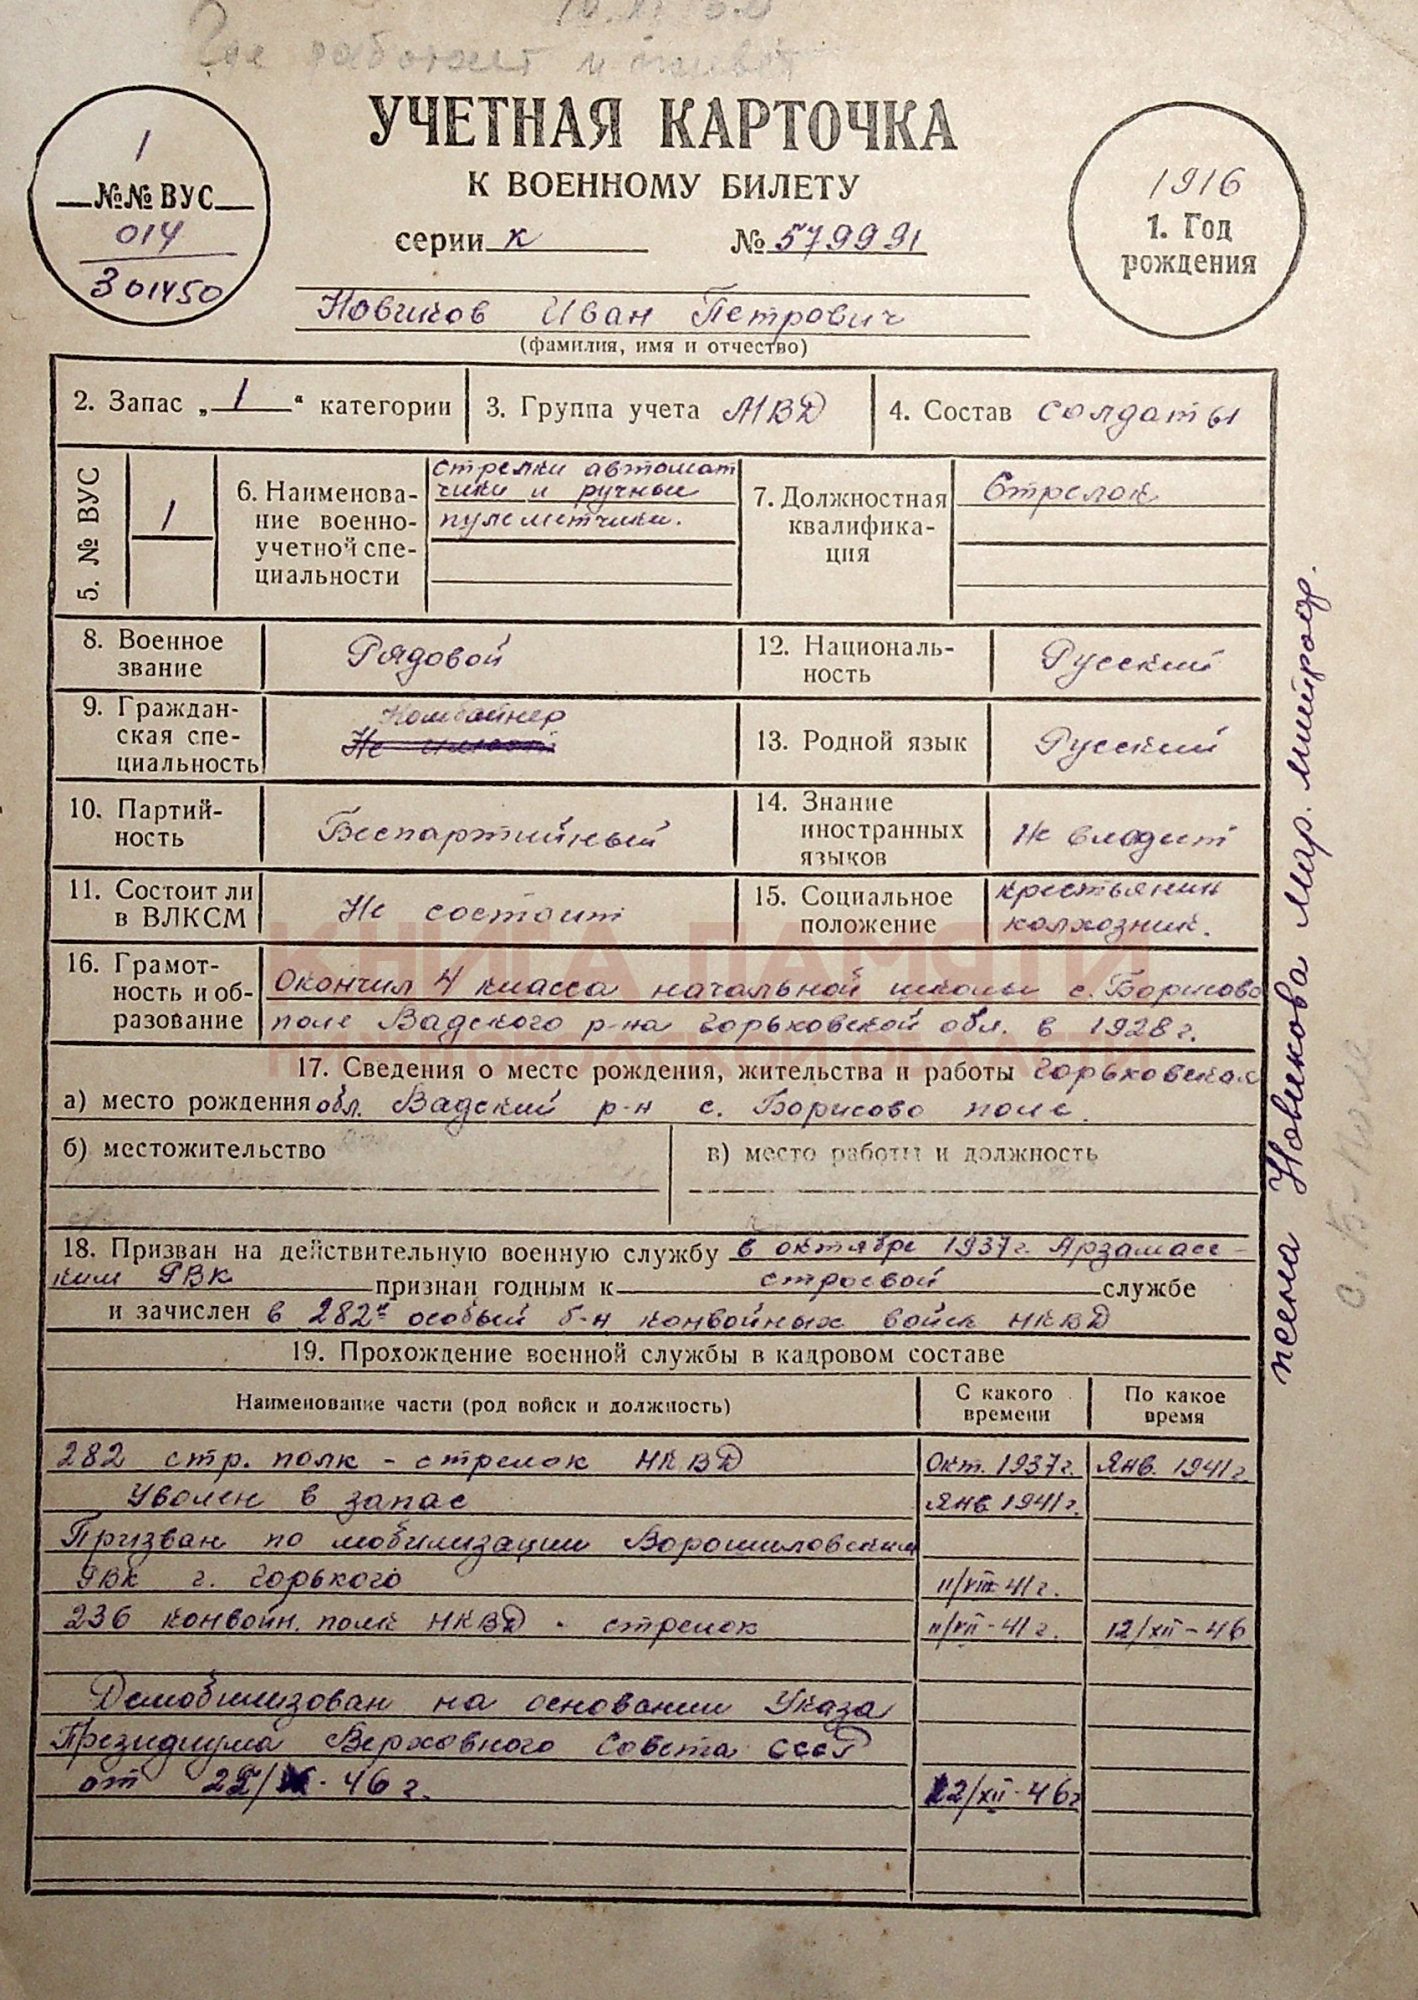 Где работает и живет
УЧЕТНАЯ КАРТОЧКА
К ВОЕННОМУ БИЛЕТУ
серии К № 579991
1
№№ ВУС
014
301450
1916
1. Год
рождения
Новиков Иван Петрович
(фамилия, имя и отчество)
2. Запас „1“ категории
3. Группа учета МВД
4. Состав солдаты
5. № ВУС
1
6. Наименова-
ние военно-
учетной спе-
циальности
стрелки автомат
чики и ручные
пулеметчики.
7. Должностная
квалифика-
ция
Стрелок
8. Военное
звание
Рядовой
12. Националь-
ность
Русский
9. Граждан-
ская спе-
циальность
Комбайнер
13. Родной язык
Русский
10. Партий-
ность
Беспартийный
14. Знание
иностранных
языков
Не владеет
11. Состоит ли
в ВЛКСМ
Не состоит
15. Социальное
положение
крестьянин
колхозник.
КНИГА ПАМЯТИ
НИЖЕГОРОДСКОЙ ОБЛАСТИ
16. Грамот-
ность и об-
разование
Окончил 4 класса начальной школы с. Борисово
поле Вадского р-на Горьковской обл. в 1928 г.
17. Сведения о месте рождения, жительства и работы Горьковская
а) место рождения обл. Вадский р-н с. Борисово поле.
б) местожительство
в) место работы и должность
18. Призван на действительную военную службу в октябре 1937 г. Арзамасс-
ким РВК признан годным к строевой службе
и зачислен в 282й особый б-н конвойных войск НКВД
19. Прохождение военной службы в кадровом составе
Наименование части (род войск и должность)
С какого
времени
По какое
время
282 стр. полк - стрелок НКВД Окт. 1937 г. Янв. 1941 г.
Уволен в запас Янв 1941 г.
Призван по мобилизации Ворошиловским
РВК г. Горького 11/VII-41 г.
236 конвойн. полк НКВД - стрелок 11/VII-41 г. 12/XII-46
Демобилизован на основании Указа
Президиума Верховного Совета СССР
от 46 г. 12/XII-46 г
жена Новикова Мар. Митроф.
с. Б-Поле